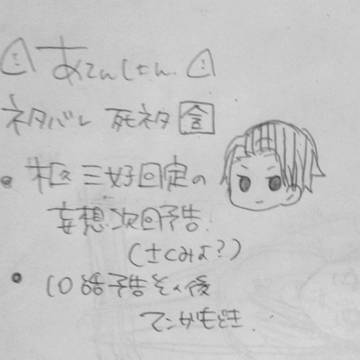 ⚠ あてんしょん ⚠
ネタバレ 死ネタ 含
• 柩 三好固定の
妄想次回予告!
(さくみよ?)
• 10話予告その後
マンガもどき.